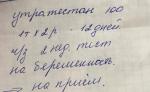 утражестан 100
1т х 2р - 12 дней
ч/з 2 нед. тест
на беременность
→ на приём.